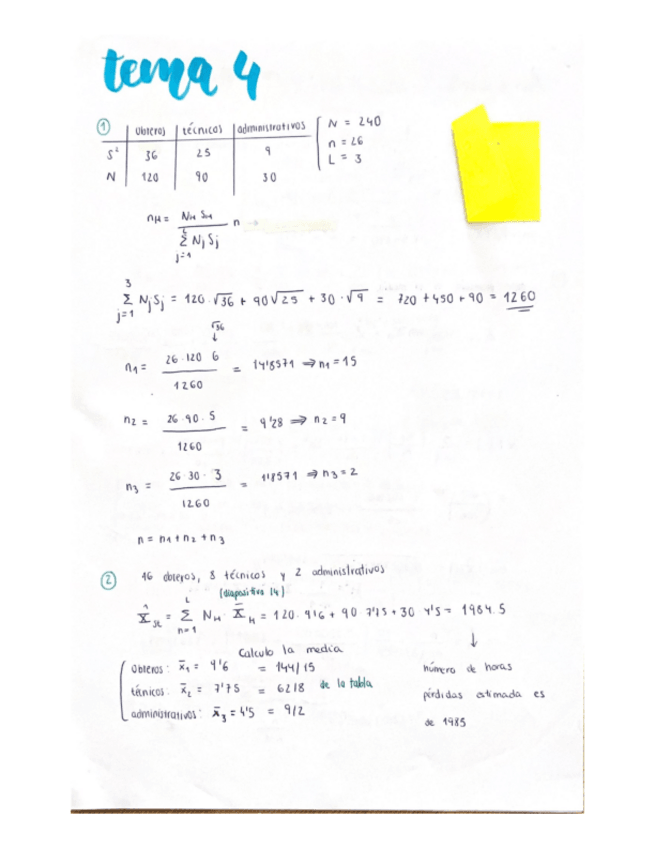 tema 4
① obreros técnicos administrativos N = 240
S² 36 25 9 n = 26
N 120 90 30 L = 3
n_H = N_H S_H / Σ_{j=1}^{L} N_j S_j n →
Σ_{j=1}^{3} N_j S_j = 120·√36 + 90√25 + 30·√9 = 720 + 450 + 90 = 1260
√36
↓
n₁ = 26·120 6 / 1260 = 14'8571 ⇒ n₁ = 15
n₂ = 26·90·5 / 1260 = 9'28 ⇒ n₂ = 9
n₃ = 26·30·3 / 1260 = 1'8571 ⇒ n₃ = 2
n = n₁ + n₂ + n₃
② 16 obreros, 8 técnicos y 2 administrativos
(diapositiva 14)
X̂_st = Σ_{n=1}^{L} N_H · X̄_H = 120·9'6 + 90·7'75 + 30 4'5 = 1984.5
↓
Calculo la media
obreros: x̄₁ = 9'6 = 144/15
técnicos: x̄₂ = 7'75 = 62/8 de la tabla
administrativos: x̄₃ = 4'5 = 9/2
número de horas
pérdidas estimada es
de 1985